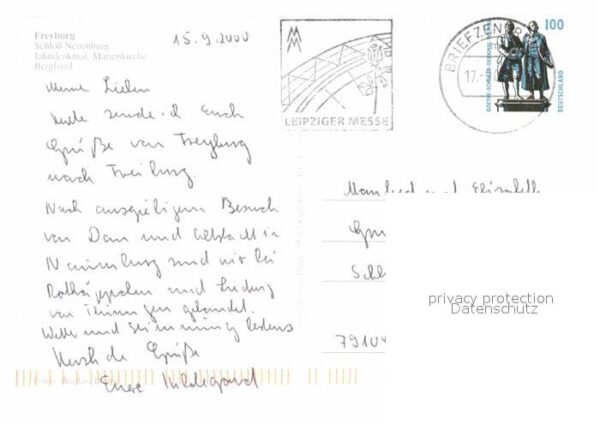 Freyburg
Schloß Neuenburg
Jahndenkmal, Marienkirche
Bergfried
15.9.2000
Meine Lieben
heute sende ich Euch
Grüße von Freyburg
nach Freiburg.
Nach ausgiebigem Besuch
von Dom und Altstadt in
Naumburg sind wir bei
Rotkäppchen und Ludwig
von Thüringen gelandet.
Wetter und Stimmung bestens
Herzliche Grüße
Eure Hildegard
LEIPZIGER MESSE
BRIEFZENTR
17.
100
GOETHE-SCHILLER-DENKMAL
DEUTSCHLAND
Manfred und Elisabeth
Schl
79104
privacy protection
Datenschutz